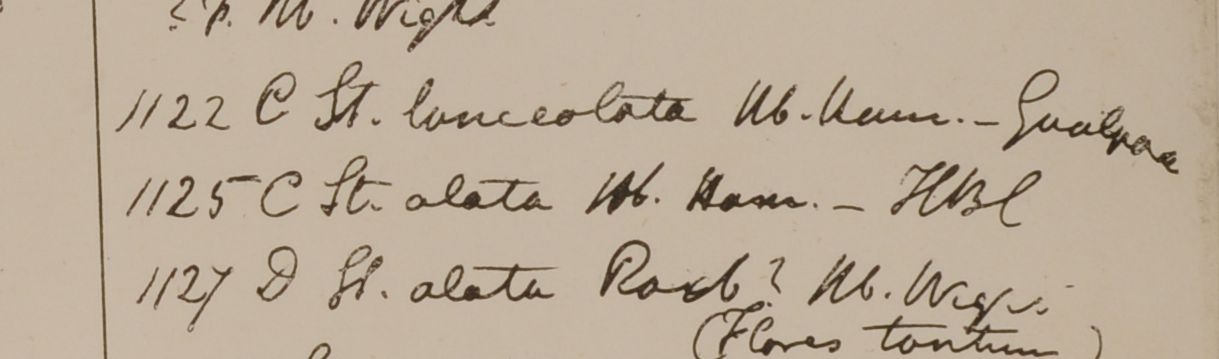 Hb. Wight
1122 C St. lanceolata Hb. Ham. - Gualpara
1125 C St. alata Hb. Ham. - HBC
1127 D St. alata Roxb? Hb. Wight
(Flores tantum)